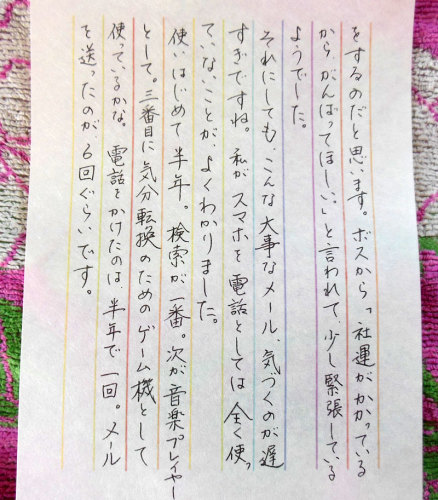 をするのだと思います。ボスから「社運がかかっている
からがんばってほしい。」と言われて、少し緊張している
ようでした。
それにしても、こんな大事なメール、気つくのが遅
すぎですね。私がスマホを電話としては全く使っ
ていないことが、よくわかりました。
使いはじめて半年。検索が一番。次が音楽プレイヤー
として。三番目に気分転換のためのゲーム機として
使っているかな。電話をかけたのは、半年で一回。メール
を送ったのが、6回ぐらいです。